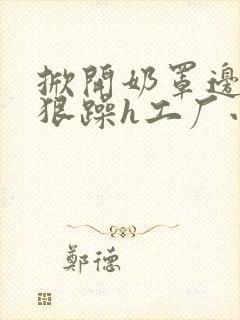 掀開奶罩邊
狠躁h工厂
鄭德